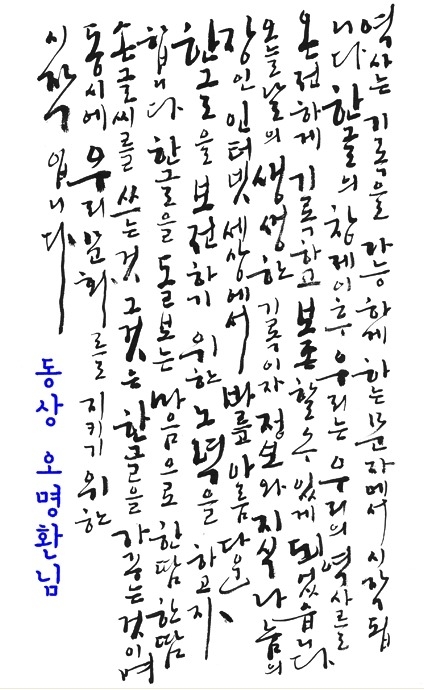 역사는 기록을 가능하게 하는 문자에서 시작됩
니다. 한글의 창제 이후 우리는 우리의 역사를
온전하게 기록하고 보존할 수 있게 되었습니다.
오늘날의 생생한 기록이자 정보와 지식 나눔의
장인 인터넷 세상에서 바르고 아름다운
한글을 보전하기 위한 노력을 하고자
합니다. 한글을 돌보는 마음으로 한땀 한땀
손글씨를 쓰는 것, 그것은 한글을 가꾸는 것이며
동시에 우리 문화를 지키기 위한
시작입니다.
동상 오명환님